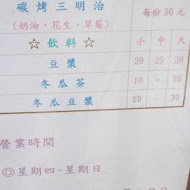 碳烤三明治 每份30元
(奶油、花生、草莓)
☆飲料☆ 小 中 大
豆漿 20 25 30
冬瓜茶 10 - 20
冬瓜豆漿 20 - 30
營業時間
◎星期四~星期日